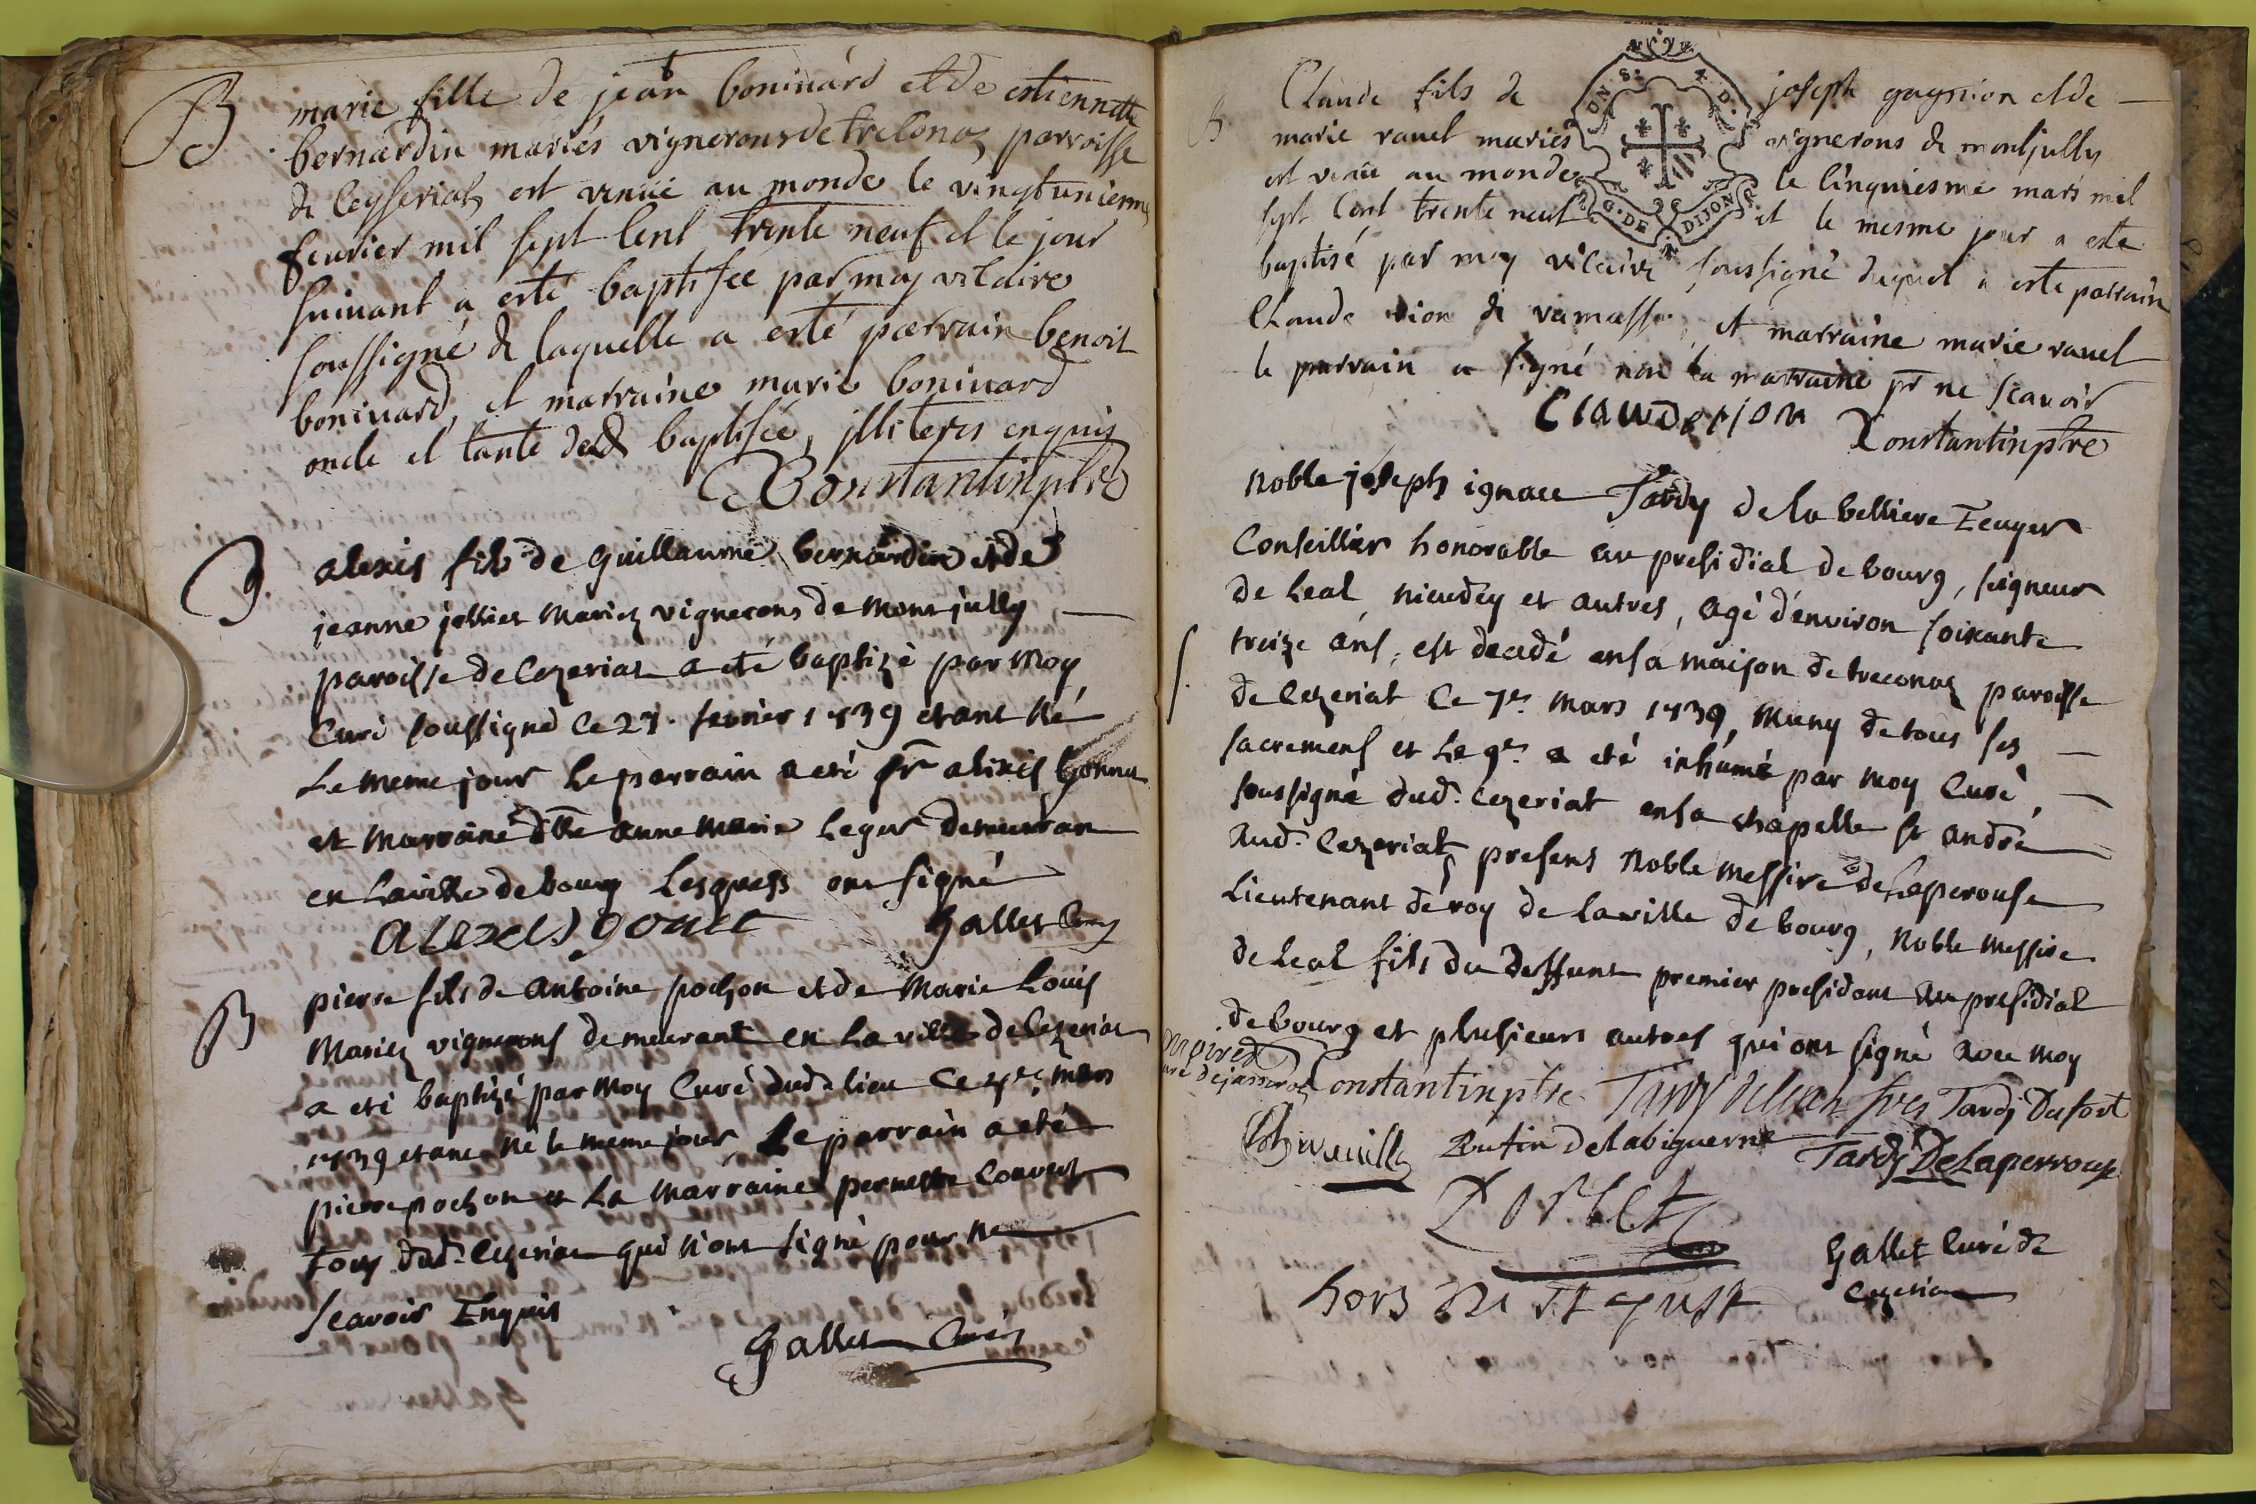 B
marie fille de jean bonivard et de estiennette
bernardin mariés vignerons de treconaz parroisse
de Ceyseriat est venüe au monde le vingt unieme
feuvrier mil sept Cent trente neuf et le jour
suivant a esté baptisée par moy vicaire
soussigné de laquelle a esté parrain benoit
bonivard, et marraine marie bonivard
oncle et tante de lad baptisée, illiteres enquis
Constantin ptre
B
alexis fils de Guillaume bernardin et de
jeanne jollier Mariez vignerons de Montjully
paroisse de Cezeriat a eté baptizé par Moy
Curé soussigné ce 27. fevrier 1739 etant Né
Le meme jour Le parrain a eté sr alixis
et Marraine dlle anne Marie Leger demeuran
en La ville de bourg Lesquels ont signé
Gallet Curé
B
pierre fils de Antoine pochon et de Marie Louis
Mariez vignerons demeurant en La ville de Cezeriat
a eté baptizé par Moy Curé dud. lieu ce 4e. mars
1739 etant Né le meme jour, Le parrain a eté
pierre pochon et La Marraine pernette Convert
Tous dud. Cezeriat qui N'ont signé pour Ne
scavoir Enquis
Gallet Curé
B.
Claude fils de joseph gagnion et de
marie ravel mariés vignerons de montjully
est venüe au monde le Cinquiesme mars mil
sept Cent trente neuf et le mesme jour a esté
baptisé par moy vicaire soussigné duquel a esté parrain
Claude pion de ramasse, et marraine marie ravel
le parrain a signé non la marraine pr ne scavoir
G. DE DIJON
Claude pion
Constantin ptre
S.
Noble joseph ignace Tardy de la belliere Ecuyer
Conseiller honorable au presidial de bourg, seigneur
de Leal, nieudey et autres, agé d'environ soixante
treize ans, est decedé en sa maison de treconaz paroisse
de Cezeriat Ce 7e. Mars 1739, Muny de tous ses
sacremens et Le 9e. a eté inhumé par Moy Curé,
soussigné dud. Cezeriat en sa chapelle st andré
aud. Cezeriat, presens Noble Messire de Laperouse
Lieutenant de roy de La ville de bourg, Noble Messire
de Leal fils du deffunt premier president au presidial
de bourg et plusieurs autres qui ont signé avec Moy
Constantin ptre Tardy Tardy Dufort
Rutin delabiguerne Tardy DeLaperrouse
Gallet Curé de
Cezeriat